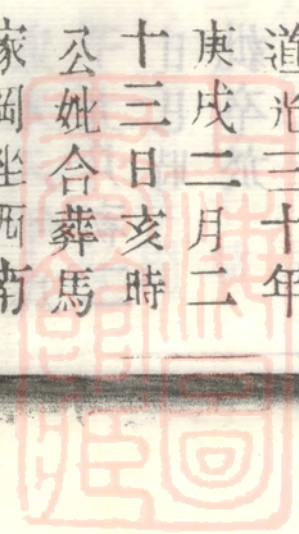 道光三十年
庚戌二月二
十三日亥時
公妣合葬馬
家岡坐西南